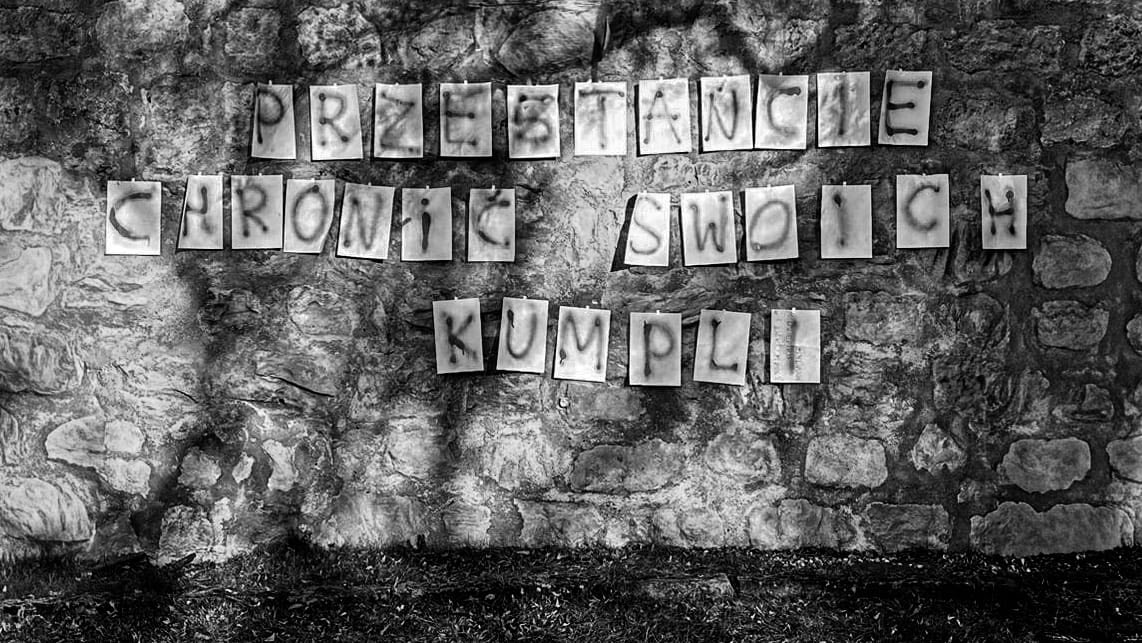 PRZESTAŃCIE
CHRONiĆ SWOICH
KUMPLI